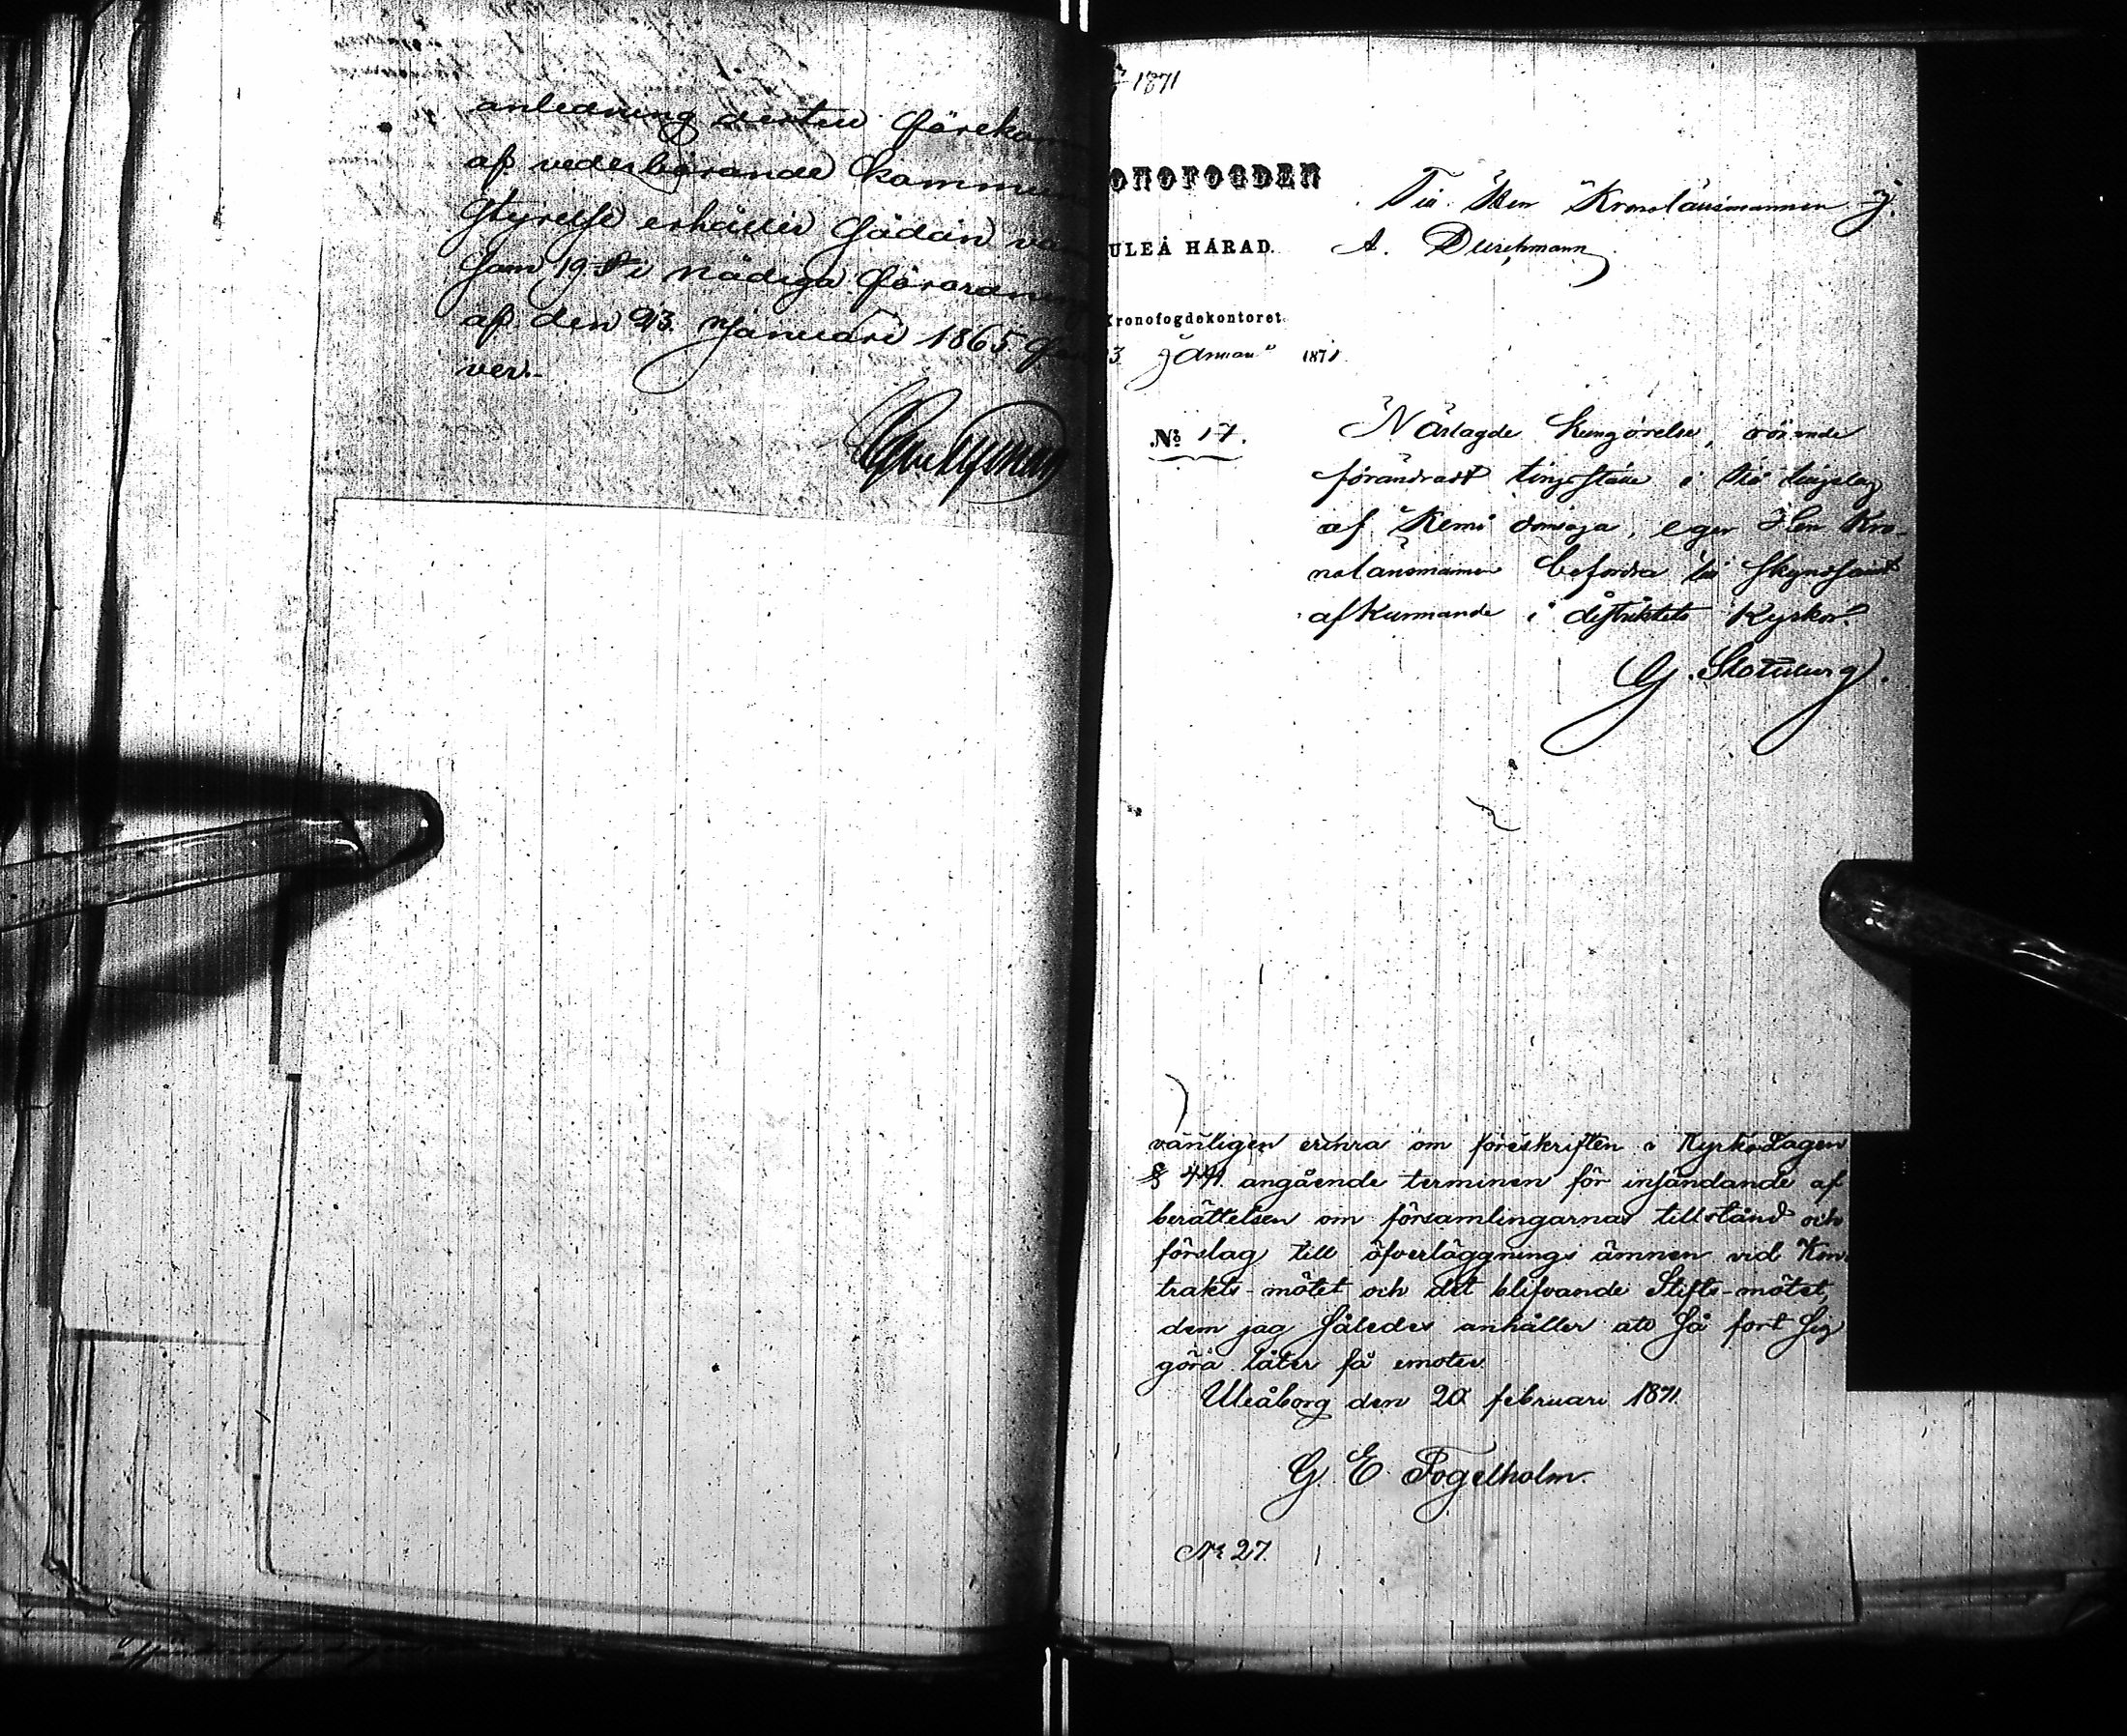 anledning dertill förekom
af vederbörande kommun
styrelse erhåller sådan
som 19 § i nådiga förordnin
af den 23 Januari 1865
ver.-
1871
ONOFOGDEN
ULEÅ HÄRAD.
Kronofogdekontoret
3 Januari 1871
Till Herr Kronolänsmannen J.
A. Durchmann
№ 17.
Närlagde kungörelse, rörande
förändradt tingsställe i Kii tingslag
af Kemi domsaga, eger Herr Kro-
nolänsmannen befordra till skyndsamt
afkunnande i distriktets kyrkor.
G.
vänligen erinra om föreskriften i Kyrko Lagen
§ 441 angående terminen för insändande af
berättelsen om församlingarnas tillstånd och
förslag till öfverläggnings ämnen vid Kon-
trakts-mötet och det blifvande Stifts-mötet,
dem jag således anhåller att så fort sig
göra låter få emotse.
Uleåborg den 20 februari 1871.
G. E. Fogelholm.
№ 27.